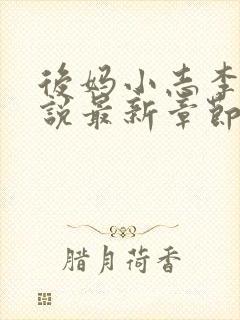 後妈小志李
說最新章節
腊月荷香